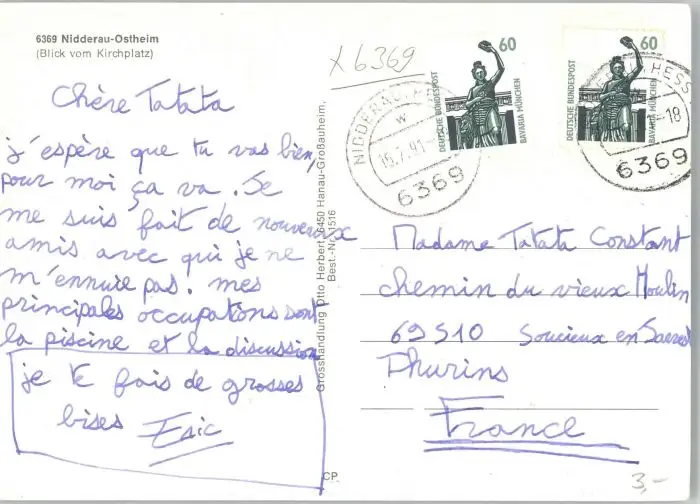 6369 Nidderau-Ostheim
(Blick vom Kirchplatz)
Chère Tatata
j'espère que tu vas bien,
pour moi ça va. Je
me suis fait de nouveaux
amis avec qui je ne
m'ennuie pas. mes
principales occupations sont
la piscine et la discussion
je te fais de grosses
bises Eric
Grosshandlung Otto Herbert, 6450 Hanau-Großauheim,
Best.-Nr. 1516
CP
X 6369
60
DEUTSCHE BUNDESPOST
BAVARIA MÜNCHEN
60
DEUTSCHE BUNDESPOST
BAVARIA MÜNCHEN
NIDDERAU
w
6369
HESS
-18
6369
Madame Tatata Constant
chemin du vieux Moulin
69510 Soucieux en
Thurins
France
3,-